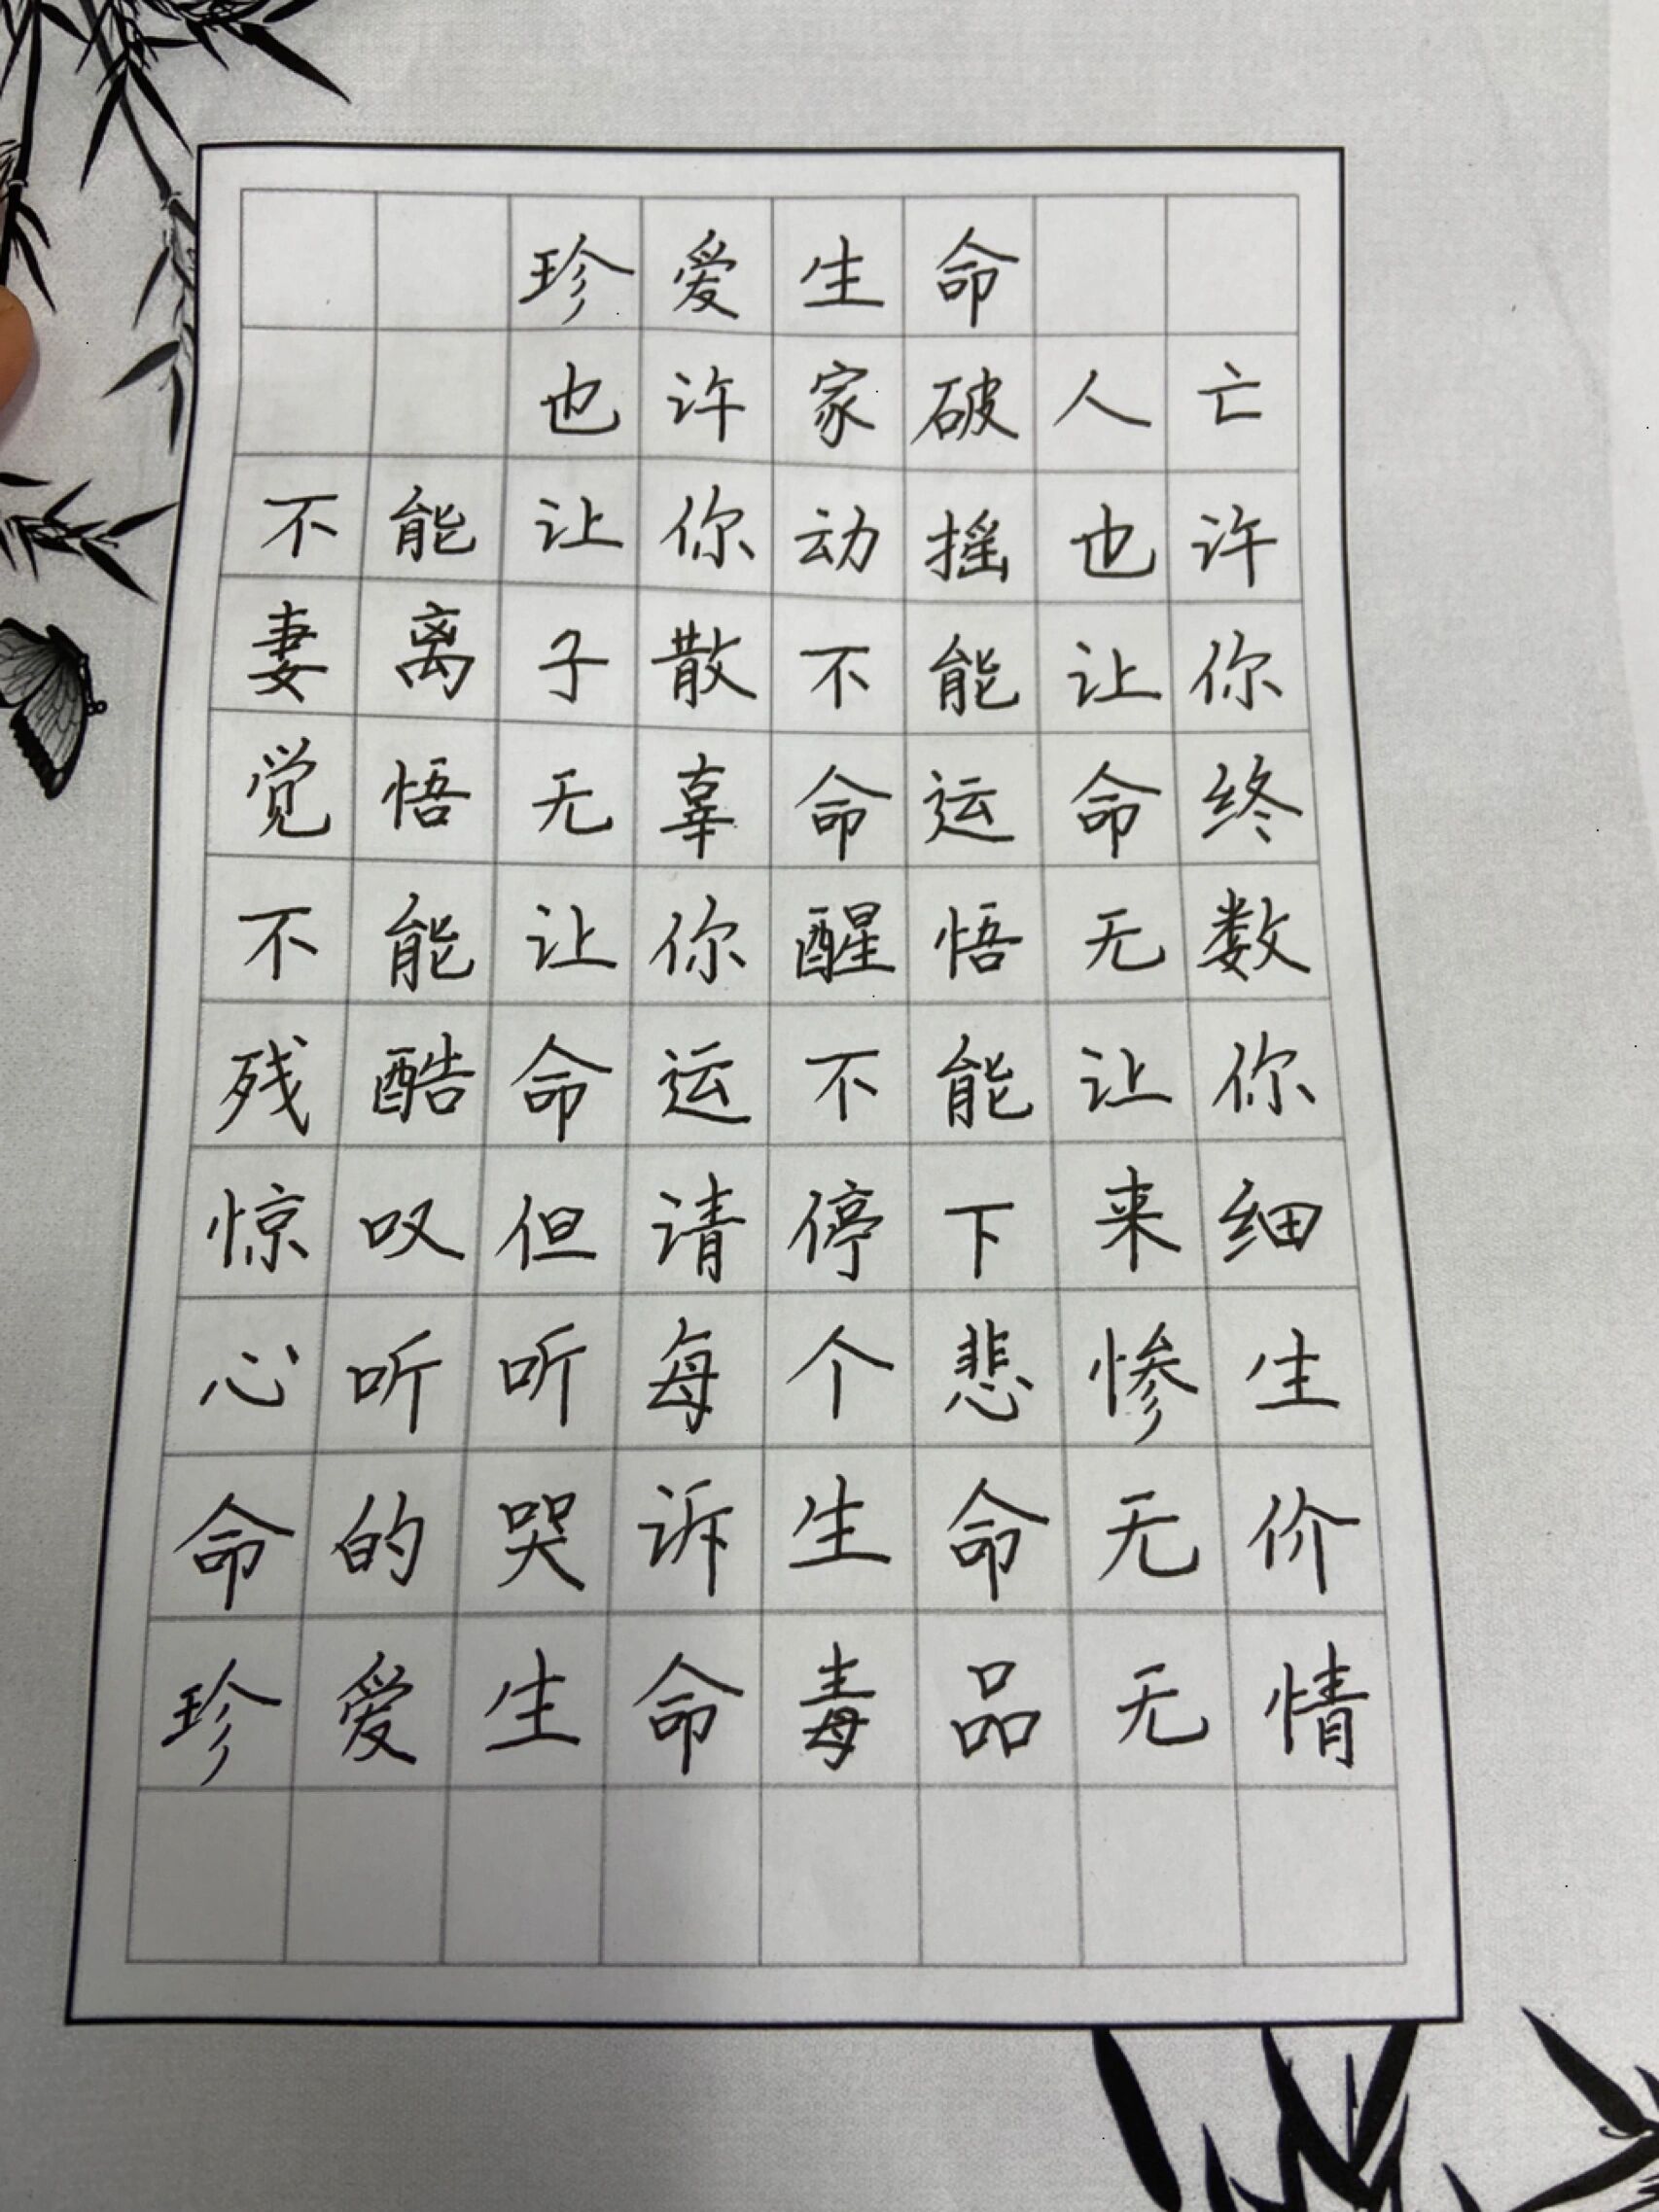 珍爱生命
也许家破人亡
不能让你动摇也许
妻离子散不能让你
觉悟无辜命运命终
不能让你醒悟无数
残酷命运不能让你
惊叹但请停下来细
心听听每个悲惨生
命的哭诉生命无价
珍爱生命毒品无情